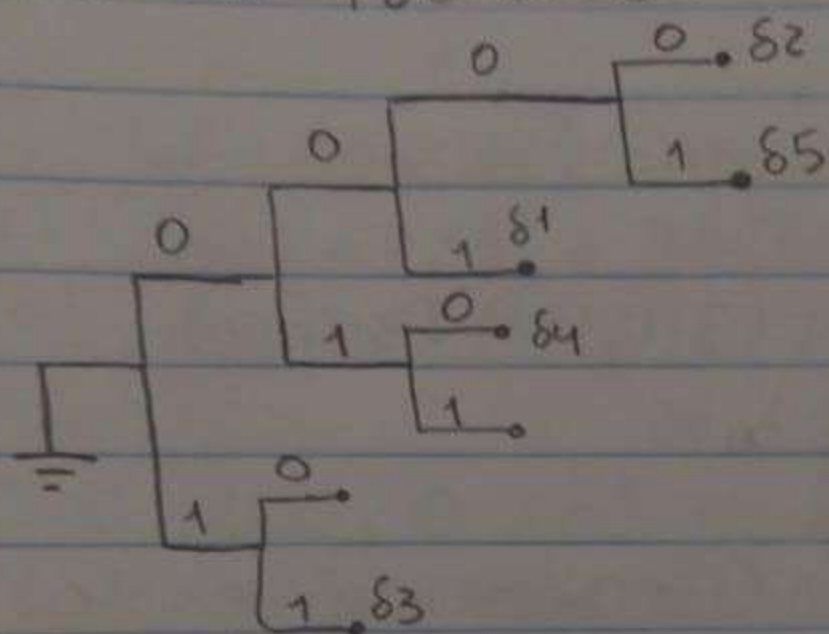 0 0 δ2
0 1 δ5
0 1 δ1
0 δ4
1
1
0
1
1 δ3